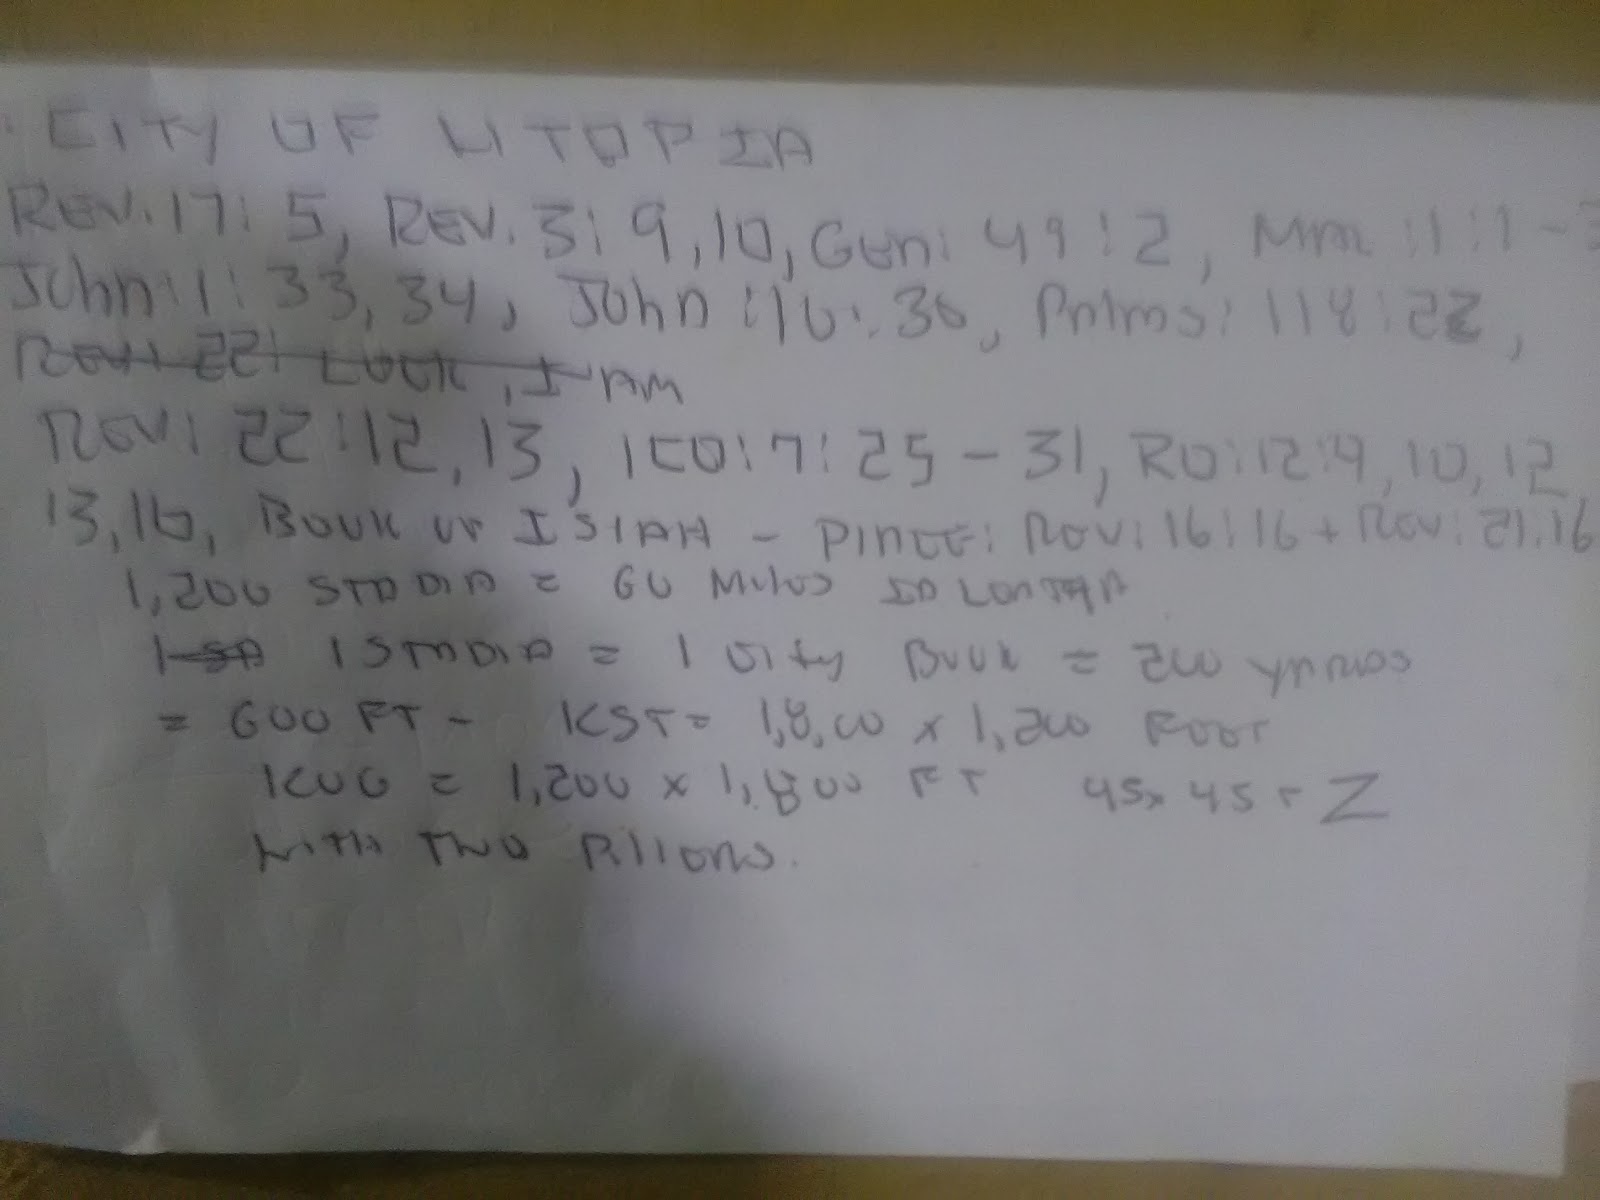 CITY OF UTOPIA
REV. 17: 5, REV. 3: 9, 10, Gen: 49: 2, :1:1-3
John: 1: 33, 34, John :10: 30, Palms: 118: 22,
Rev: 22: LOOK, I AM
REV: 22:12, 13, 1CO: 7: 25 - 31, RO: 12: 4, 10, 12,
13, 16, BOOK OF ISIAH - Rev: 16:16 + Rev: 21:16
1,200 STADIA = 60 Miles
1 STADIA = 1 City = 200
= 600 FT - KST = 1,8,00 x 1,200 FOOT
= 1,200 x 1,800 FT 45x 45 Z
with TWO